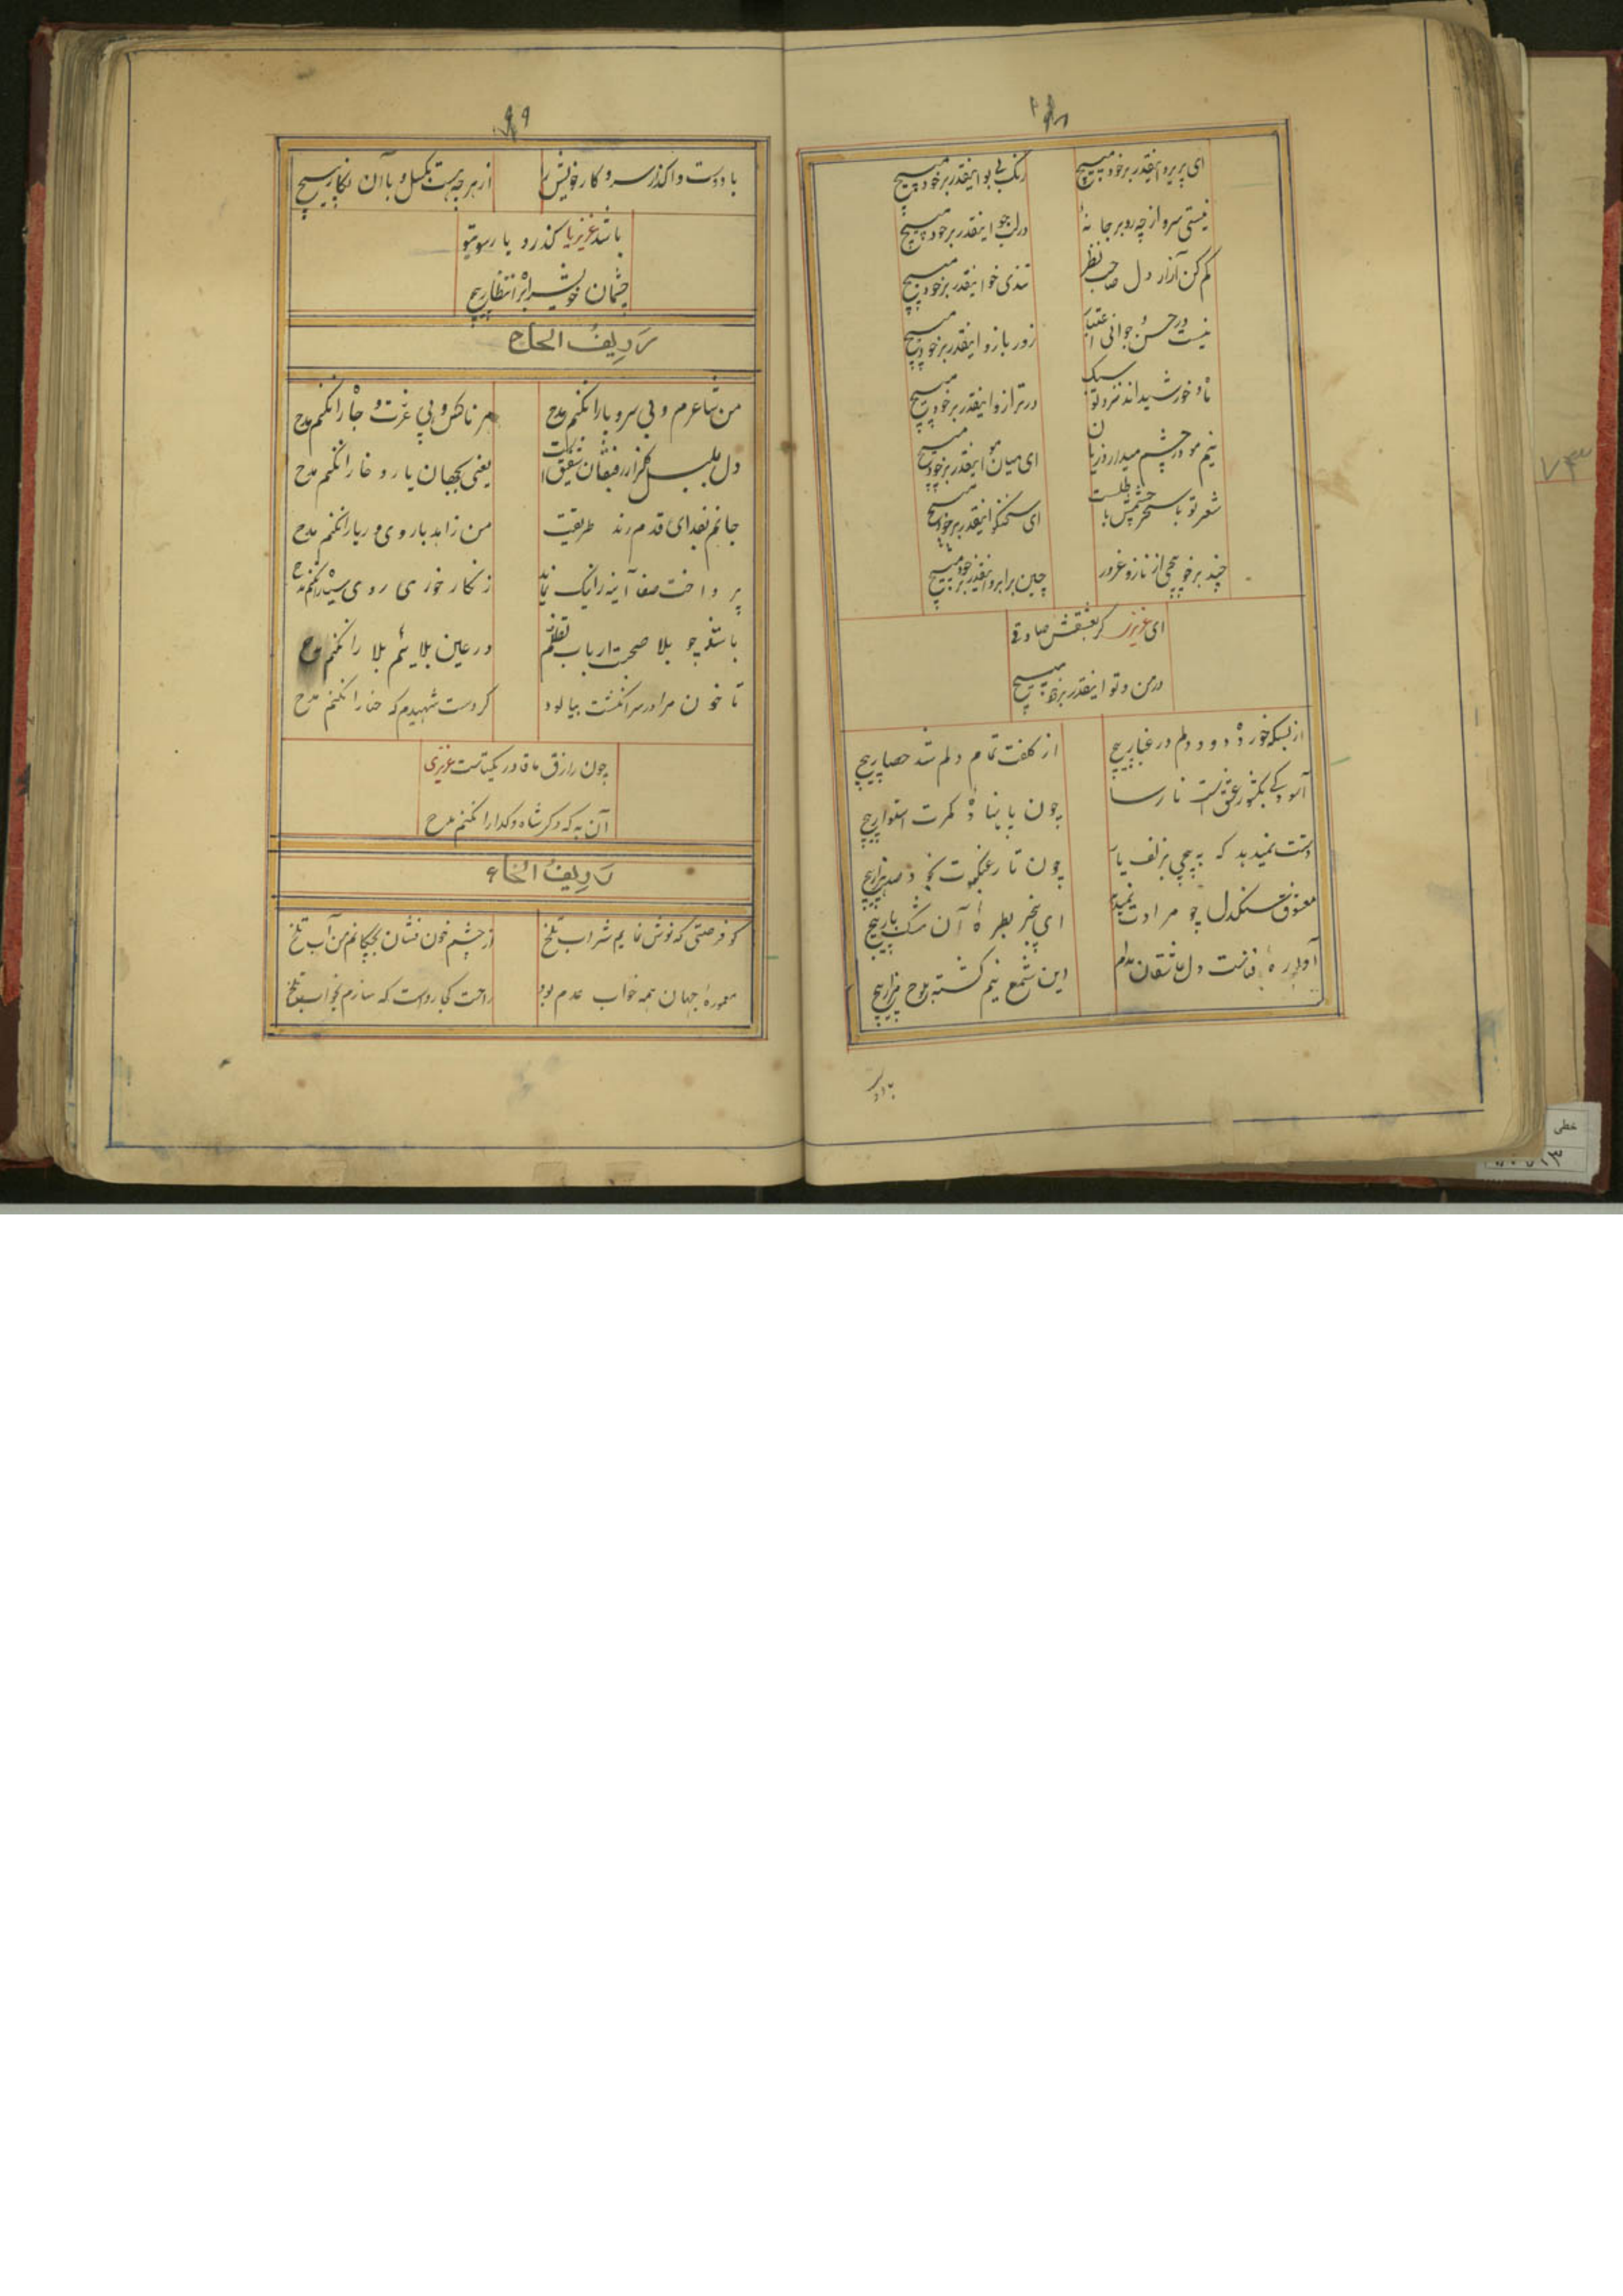 ای پریرو اینقدر برخود مپیچ
رنک بی بو اینقدر برخود مپیچ
نیستی سرو از چه رو برجا نهٔ
در لب جو اینقدر برخود مپیچ
کم کن آزار دل صاحب نظر
تندی خو اینقدر برخود مپیچ
نیست در حسن و جوانی اعتبار
زور بازو اینقدر برخود مپیچ
ماه و خورشیداند نزد تو سبک
در ترازو اینقدر برخود مپیچ
نیم مو در چشم میدارد زیان
ای میان مو اینقدر برخود مپیچ
شعر تو با سحر چشمش باطلست
ای سخنکو اینقدر برخود مپیچ
چند برخود پیچی از ناز و غرور
چین برابرو اینقدر برخود مپیچ
ای عزیز کر بعشقش صادقی
در من و تو اینقدر برخود مپیچ
از بسکه خورده دود دلم در غبار پیچ
از کلفت تمام دلم شد حصار پیچ
آسودکی بکشور عشقست نارسا
چون با بنای کمرت استوار پیچ
دستت نمیدهد که به پیچی بزلف یار
چون تار عنکبوت بخود صد هزار پیچ
معشوق سنکدل چو مرادت نمیدهد
ای بیخبر بطرهٔ آن مشکبار پیچ
آوارهٔ فناست دل عاشقان مدام
این شمع نیم کشته بلوح مزار پیچ
بادو
۹۹
با دوست واکذر سر و کار خویش را
از هر چه هست بکسل و با آن نکار پیچ
باشد عزیز یا کذرد یار سوی تو
چشمان خویش را بره انتظار پیچ
ردیف الحاح
من شاعرم و بی سر و پا را نکنم مدح
هر ناکس و بی غرت و جا را نکنم مدح
دل بلبل کلزار رفیقان شفیق است
یعنی بجهان یار دغا را نکنم مدح
جانم بفدای قدم رند طریقت
من زاهد با روی و ریا را نکنم مدح
پرداخت صفا آینه را نیک نماید
زنکار خوری روی سیاه را نکنم مدح
باشد چو بلا صحبت ارباب تظلم
در عین بلایم بلا را نکنم مدح
تا خون مرا در سر انکشت بیالود
کر دست شهیدم که حنا را نکنم مدح
چون رازق ما قادر یکتاست عزیزی
آن به که دکر شاه و کدا را نکنم مدح
ردیف الخاء
کو فرصتی که نوش نمایم شراب تلخ
از چشم خون فشان بچکانم من آب تلخ
معمورهٔ جهان همه خواب عدم بود
راحت کجا رواست که سازم بخواب تلخ
۷۳
خطی